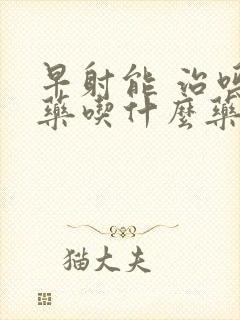 早射能 治嗎
藥喫什麼藥
猫大夫